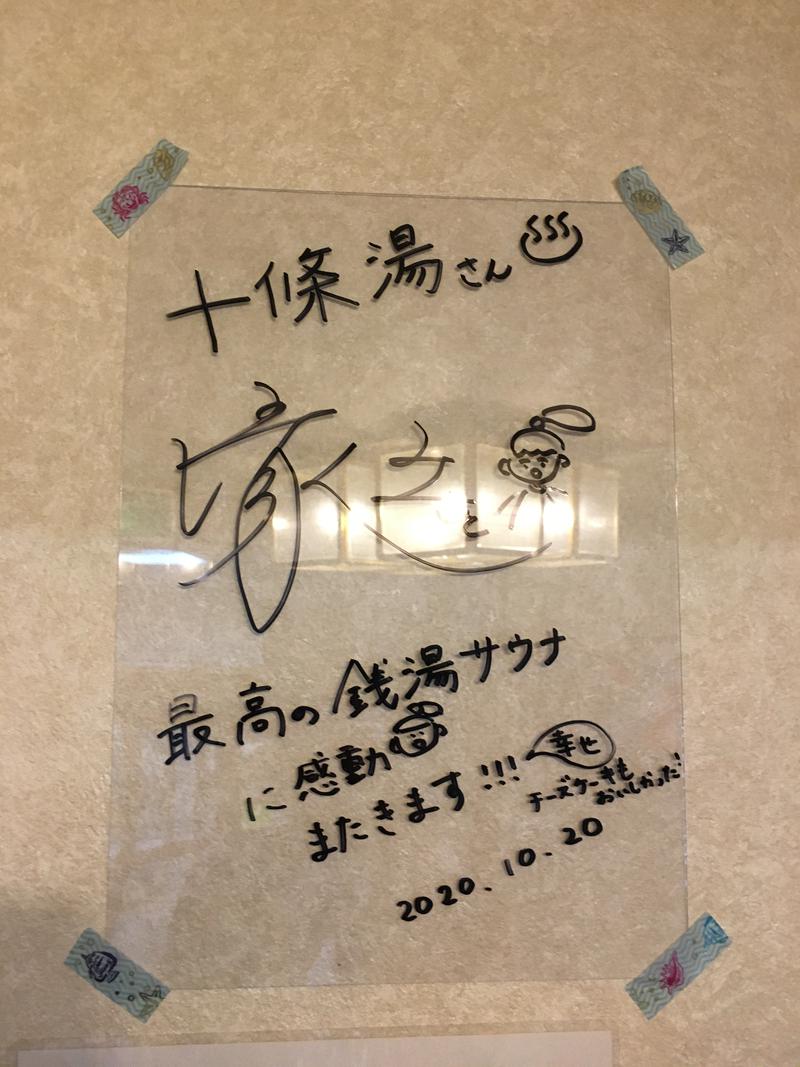 十條湯さん
最高の銭湯サウナ
に感動
またきます!!!
幸せ
チーズケーキも
おいしかった!
2020.10.20